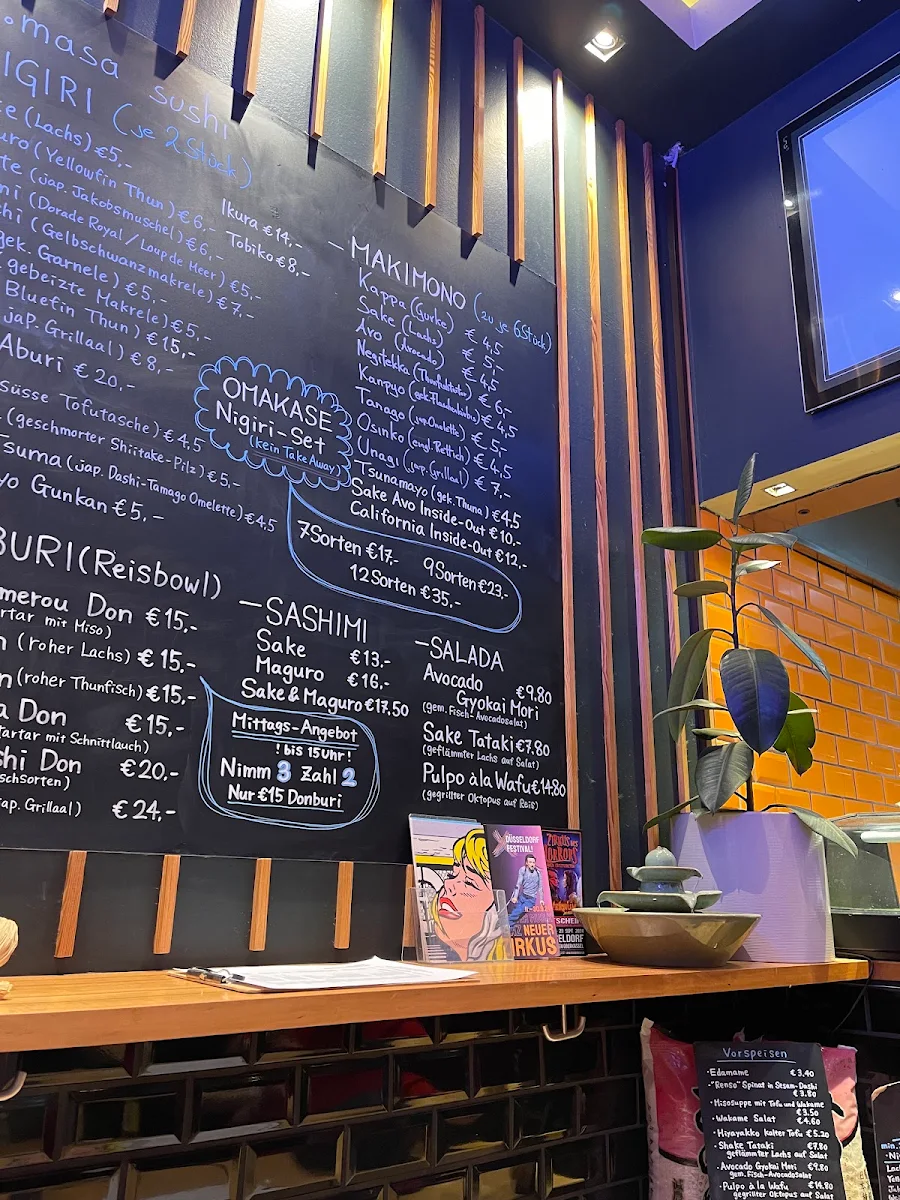 omasa
sushi
IGIRI (je 2 Stück)
(Lachs) €5,-
(Yellowfin Thun) €6,-
(jap. Jakobsmuschel) €6,-
(Dorade Royal / Loup de Meer) €5,-
(Gelbschwanzmakrele) €7,-
gek. Garnele) €5,-
gebeizte Makrele) €5,-
Bluefin Thun) €15,-
jap. Grillaal) €8,-
Aburi €20,-
süsse Tofutasche) €4,5
(geschmorter Shiitake-Pilz) €5,-
(jap. Dashi-Tamago Omelette) €4,5
yo Gunkan €5,-
Ikura €14,-
Tobiko €8,-
OMAKASE
Nigiri-Set
(kein Take Away)
7 Sorten €17,-
9 Sorten €23.-
12 Sorten €35,-
BURI (Reisbowl)
merou Don €15,-
tartar mit Miso)
(roher Lachs) €15,-
(roher Thunfisch) €15,-
a Don €15,-
tartar mit Schnittlauch)
shi Don €20.-
schsorten)
jap. Grillaal) €24,-
—MAKIMONO (zu je 6 Stück)
Kappa (Gurke) €4,5
Sake (Lachs) €5,-
Avo (Avocado) €4,5
Negitekka €6,-
Kanpyo €4,5
Tanago (jap. Omelette) €5,-
Osinko (eingl. Rettich) €4,5
Unagi (jap. Grillaal) €7,-
Tsunamayo (gek. Thuna) €4,5
Sake Avo Inside-Out €10.-
California Inside-Out €12,-
—SASHIMI
Sake €13.-
Maguro €16,-
Sake & Maguro €17,50
Mittags-Angebot
! bis 15 Uhr !
Nimm 3 Zahl 2
Nur €15 Donburi
—SALADA
Avocado
Gyokai Mori €9,80
(gem. Fisch-Avocadosalat)
Sake Tataki €7.80
(geflämmter Lachs auf Salat)
Pulpo à la Wafu €14.80
(gegrillter Oktopus auf Reis)
DÜSSELDORF
FESTIVAL!
NEUER
IRKUS
ZIRKUS DES
HORRORS
Vorspeisen
· Edamame €3.40
· "Renso" Spinat in Sesam-Dashi
€3.80
· Misosuppe mit Tofu und Wakame
€3.50
· Wakame Salat €4.60
· Hiyayakko kalter Tofu €5.20
· Shake Tataki €7.80
geflämmter Lachs auf Salat
· Avocado Gyokai Mori €9.80
gem. Fisch-Avocadosalat
· Pulpo à la Wafu €14.80
gegrillter Oktopus auf Reis
min.